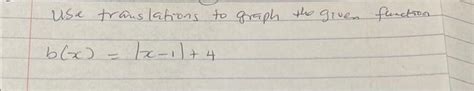 Use translations to graph the given function
b(x) = |x-1| + 4